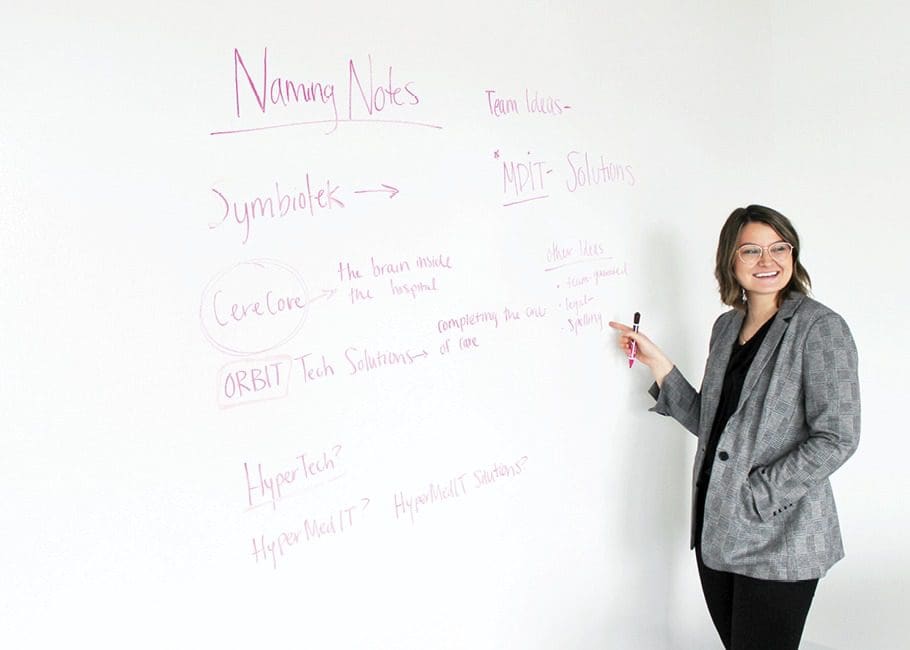 Naming Notes
Team Ideas-
*MDIT- Solutions
Symbiotek →
CereCore → the brain inside
the hospital
other Ideas
• team-
• legal-
• spelling
ORBIT Tech Solutions → completing the
of care
HyperTech?
HyperMedIT?
HyperMedIT Solutions?